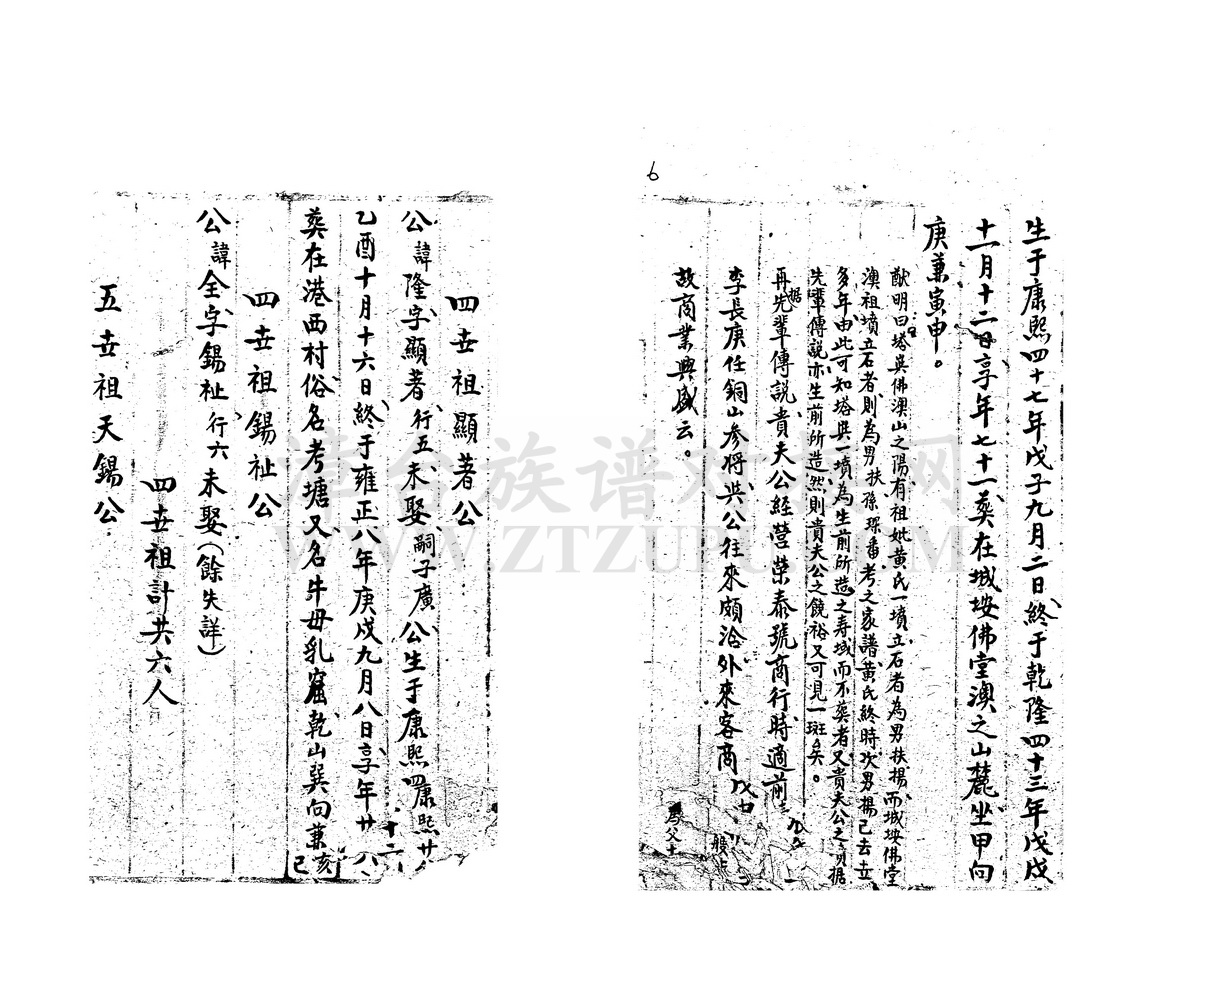 6
生于康熙四十七年戊子九月二日終于乾隆四十三年戊戌
十一月十二日享年七十一葬在城垵佛堂澳之山麓坐甲向
庚兼寅申。
猷明曰塔與佛澳山之陽有祖妣黃氏一墳立石者為男扶揚而城垵佛堂
澳祖墳立石者則為男扶孫琛番考之家譜黃氏終時次男揚已去世
多年由此可知塔與一墳為生前所造之壽域而不葬者又貴夫公之 據
先輩傳說亦生前所造然則貴夫公之饒裕又可見一斑矣。
再據先輩傳說貴夫公經營榮泰號商行時適前
李長庚任銅山參將與公往來頗洽外來客商
故商業興盛云。
四世祖顯著公
公諱隆字顯著行五未娶嗣子廣公生于康熙四康熙廿
乙酉十月十六日終于雍正八年庚戌九月八日享年廿
葬在港西村俗名考塘又名牛母乳窟乾山巽向兼亥
巳
四世祖錫祉公
公諱全字錫祉行六未娶(餘失詳)
四世祖計共六人
五世祖天錫公
漳台族谱对接网
WWW.ZTZUPU.COM